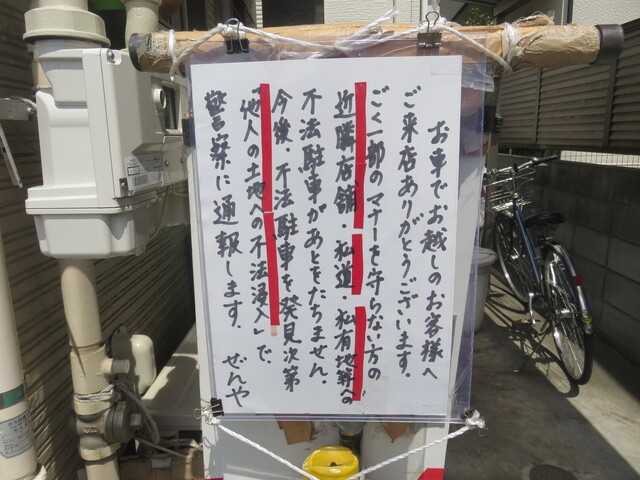 お車でお越しのお客様へ
ご来店ありがとうございます.
ごく一部のマナーを守らない方の
近隣店舗・私道・私有地等への
不法駐車があとをたちません.
今後、不法駐車を発見次第
「他人の土地への不法侵入」で
警察に通報します. ぜんや